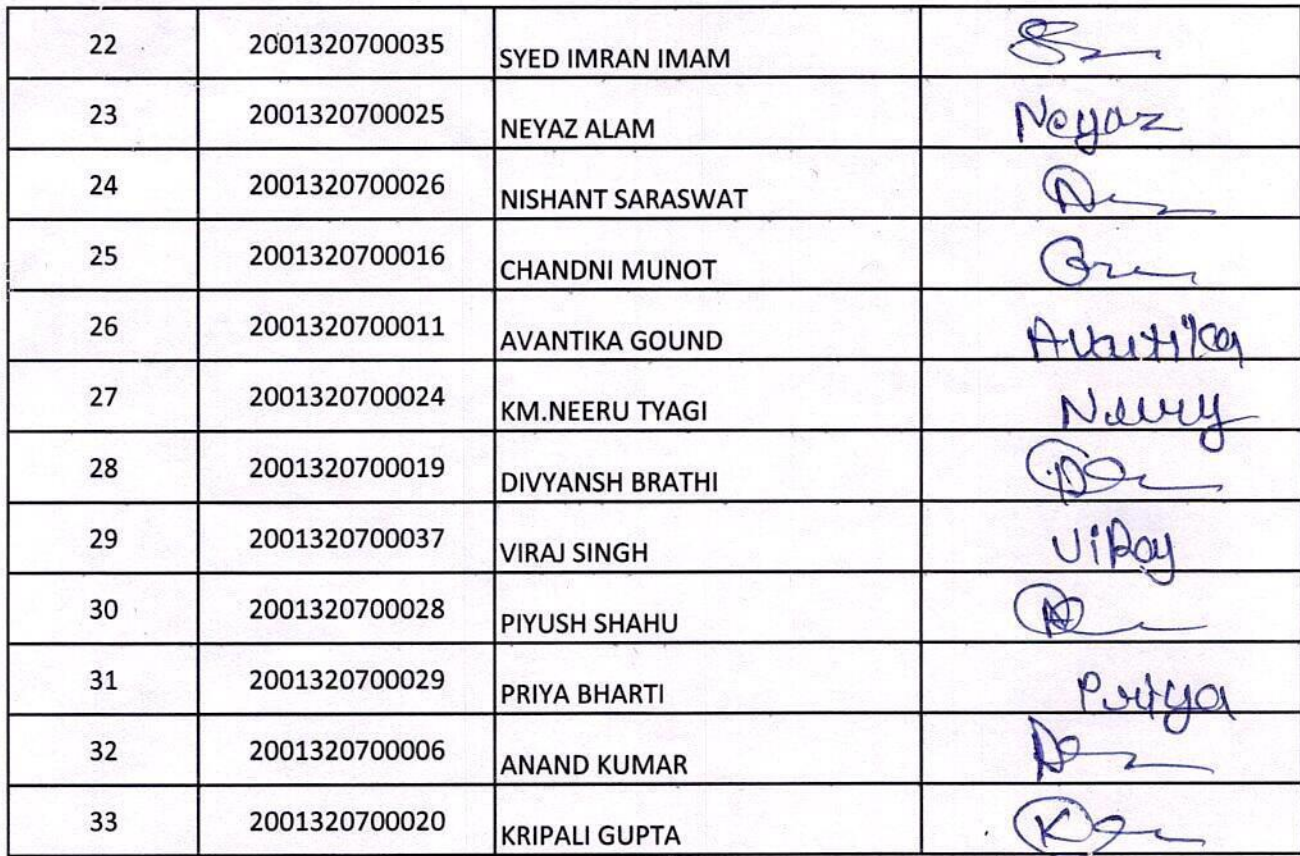 22 2001320700035 SYED IMRAN IMAM
23 2001320700025 NEYAZ ALAM Neyaz
24 2001320700026 NISHANT SARASWAT
25 2001320700016 CHANDNI MUNOT
26 2001320700011 AVANTIKA GOUND Avantika
27 2001320700024 KM.NEERU TYAGI
28 2001320700019 DIVYANSH BRATHI
29 2001320700037 VIRAJ SINGH ViRaj
30 2001320700028 PIYUSH SHAHU
31 2001320700029 PRIYA BHARTI Priya
32 2001320700006 ANAND KUMAR
33 2001320700020 KRIPALI GUPTA